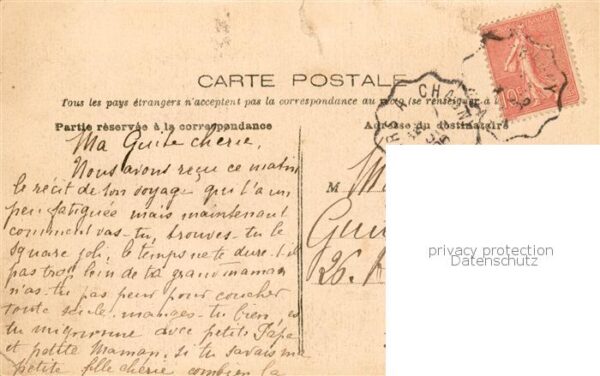 CARTE POSTALE
Tous les pays étrangers n'acceptent pas la correspondance au recto (se renseigner à la
Partie réservée à la correspondance
Adresse du destinataire
Ma Guite chérie,
Nous avons reçu ce matin
le récit de ton voyage qui t'a un
peu fatiguée mais maintenant
comment vas-tu, trouves-tu le
square joli, le temps ne te dure-t-il
pas trop loin de ta grand maman
n'as-tu pas peur pour coucher
toute seule. manges-tu bien, es
tu mignonne avec petits Papa
et petite Maman, si tu savais ma
petite fille chérie combien la
M
Gui
26.
CHA
10c
privacy protection
Datenschutz